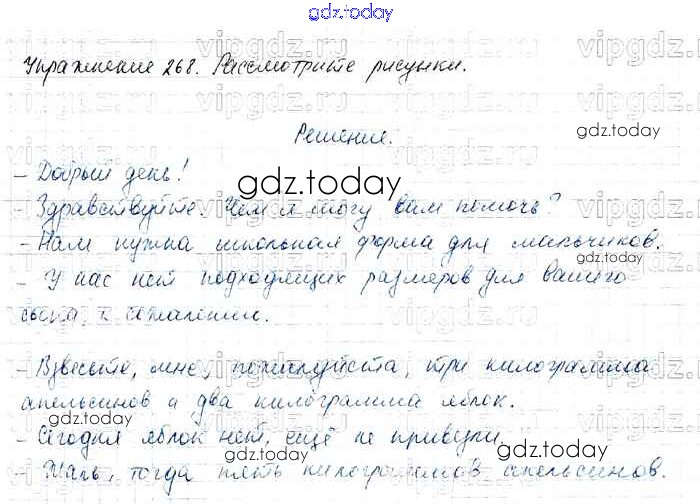 gdz.today
Упражнение 268. Рассмотрите рисунки.
Решение.
gdz.today
- Добрый день!
gdz.today
- Здравствуйте. Чем я могу вам помочь?
- Нам нужна школьная форма для мальчиков.
- У нас нет подходящих размеров для вашего
сына, к сожалению.
gdz.today
- Взвесьте, мне, пожалуйста, три килограмма
апельсинов и два килограмма яблок.
gdz.today
- Сегодня яблок нет, ещё не привезли.
gdz.today
- Жаль, тогда пять килограммов апельсинов.